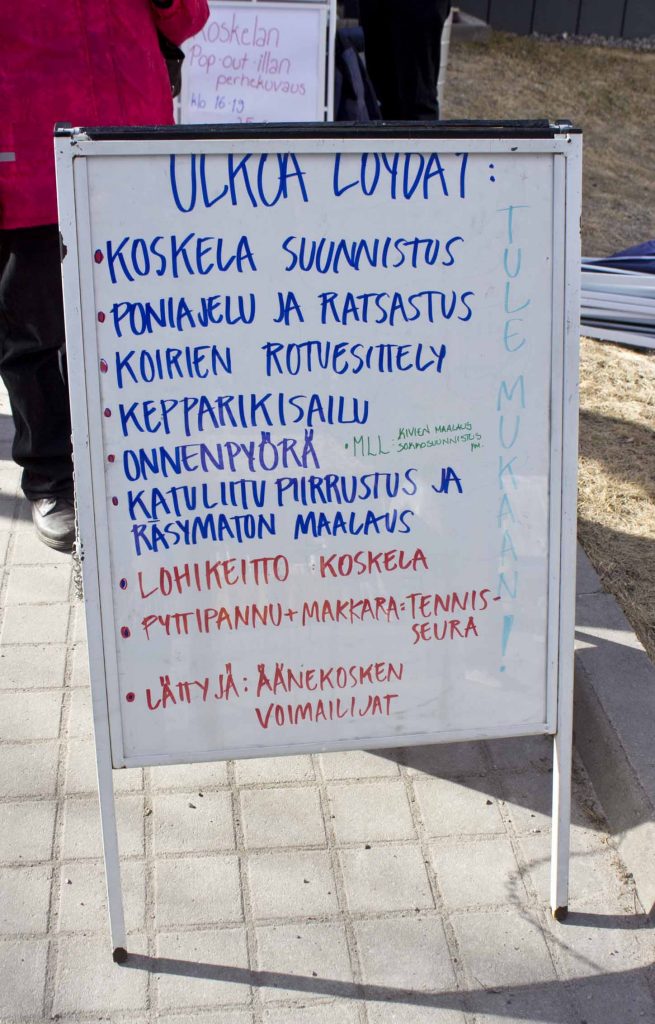 Koskelan
Pop-out-illan
perhekuvaus
klo 16-19
ULKOA LÖYDÄT:
• KOSKELA SUUNNISTUS
• PONIAJELU JA RATSASTUS
• KOIRIEN ROTUESITTELY
• KEPPARIKISAILU
• ONNENPYÖRÄ
• MLL: KIVIEN MAALAUS
SOKKOSUUNNISTUS
YM.
• KATULIITU PIIRRUSTUS JA
RÄSYMATON MAALAUS
• LOHIKEITTO KOSKELA
• PYTTIPANNU+MAKKARA:TENNIS-
SEURA
• LÄTTYJÄ: ÄÄNEKOSKEN
VOIMAILIJAT
TULE MUKAAN!